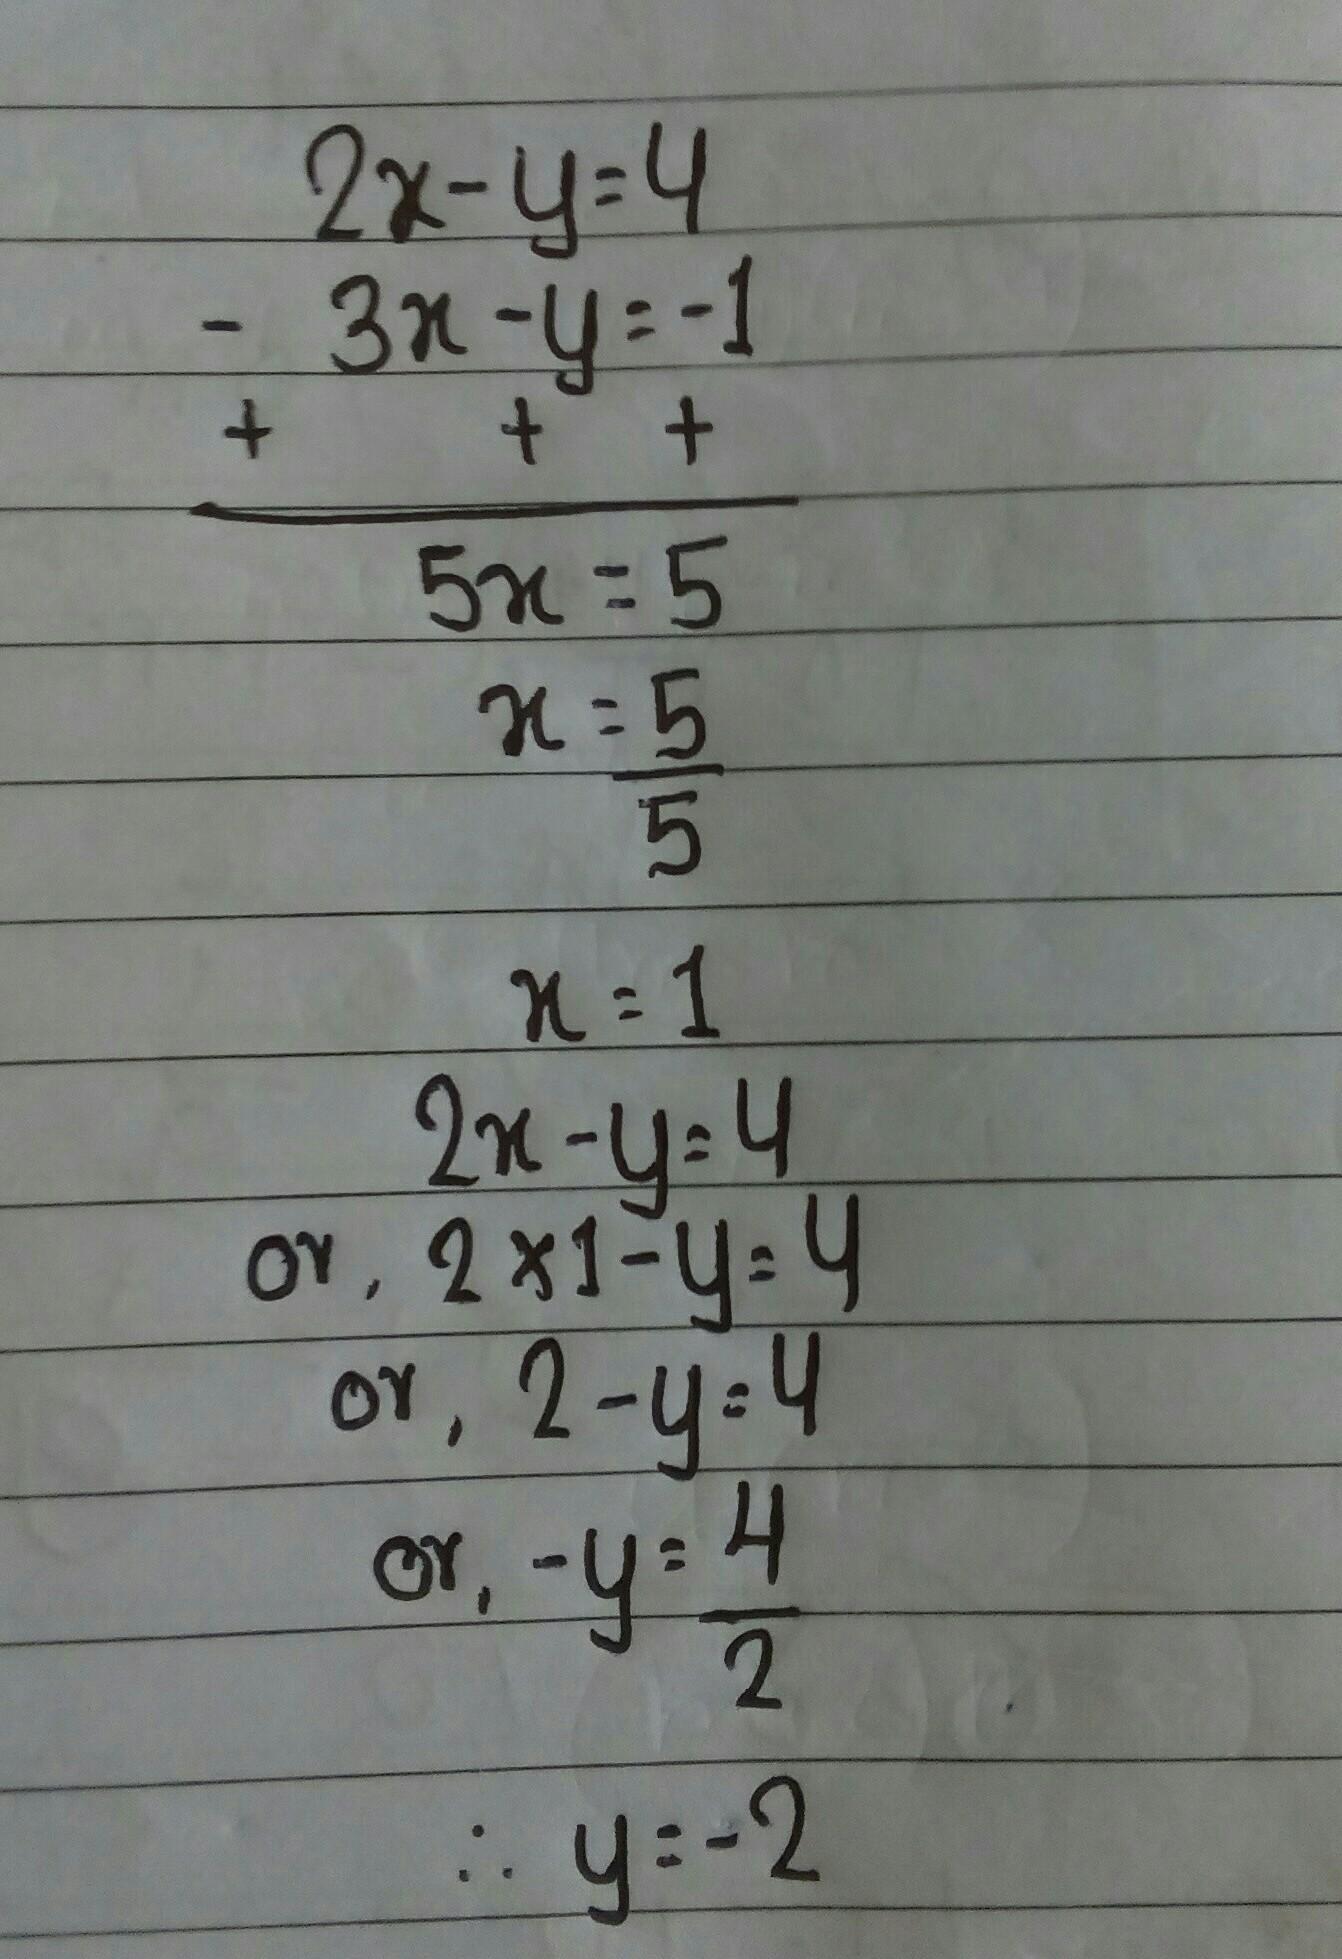 2x-y=4
- 3x-y=-1
+ + +
5x=5
x=5/5
x=1
2x-y=4
or, 2×1-y=4
or, 2-y=4
or, -y=4/2
∴ y=-2